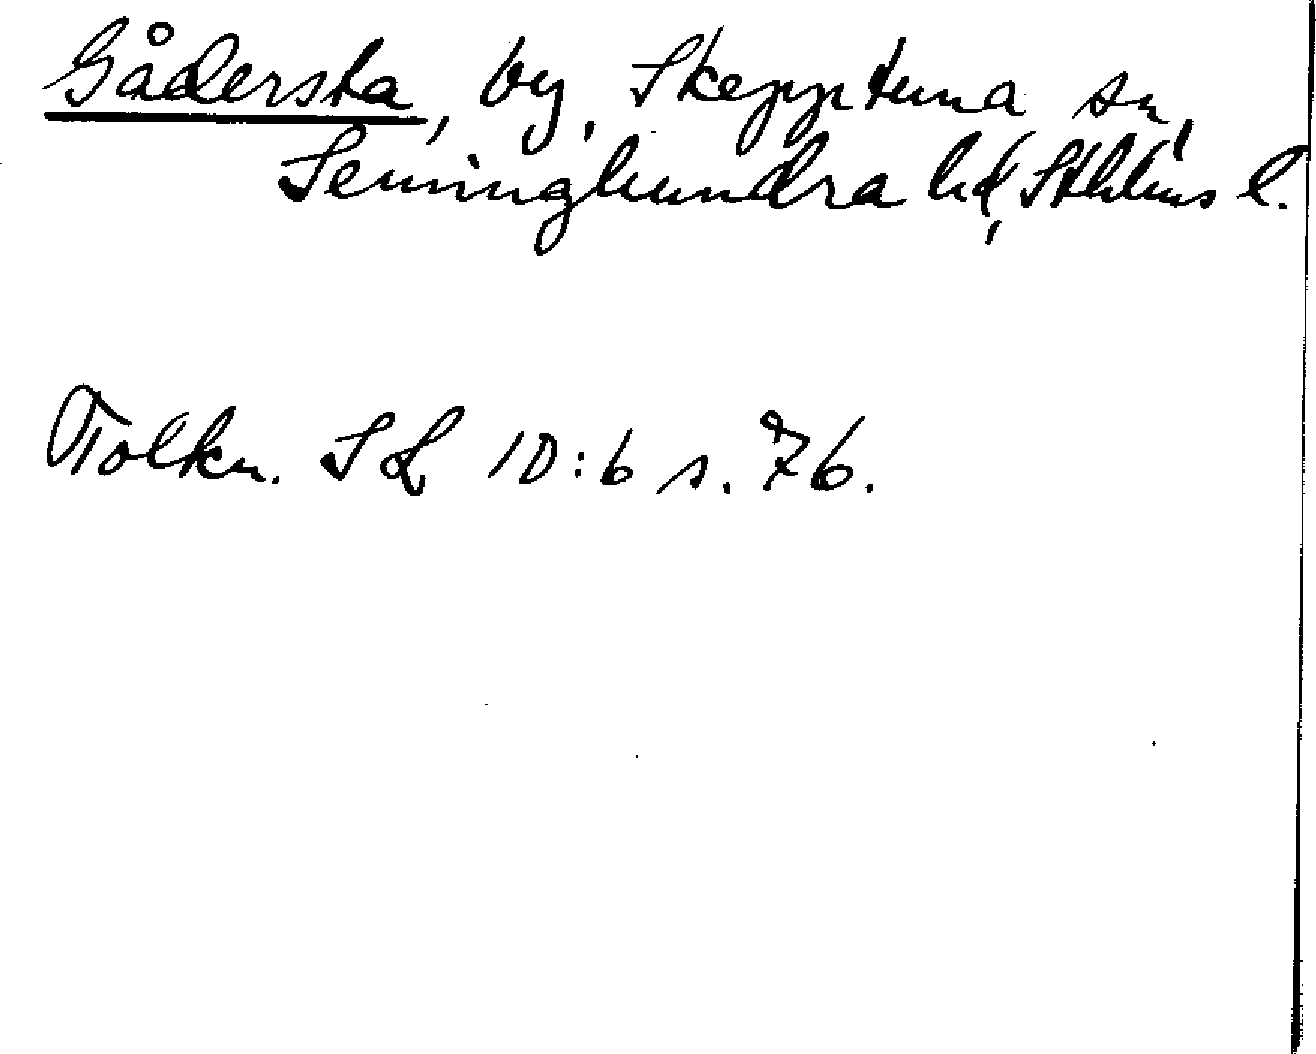 Gådersta, by, Skepptuna sn,
Seminghundra hd, Sthlms l.
Tolkn. SL 10:6 s. 76.